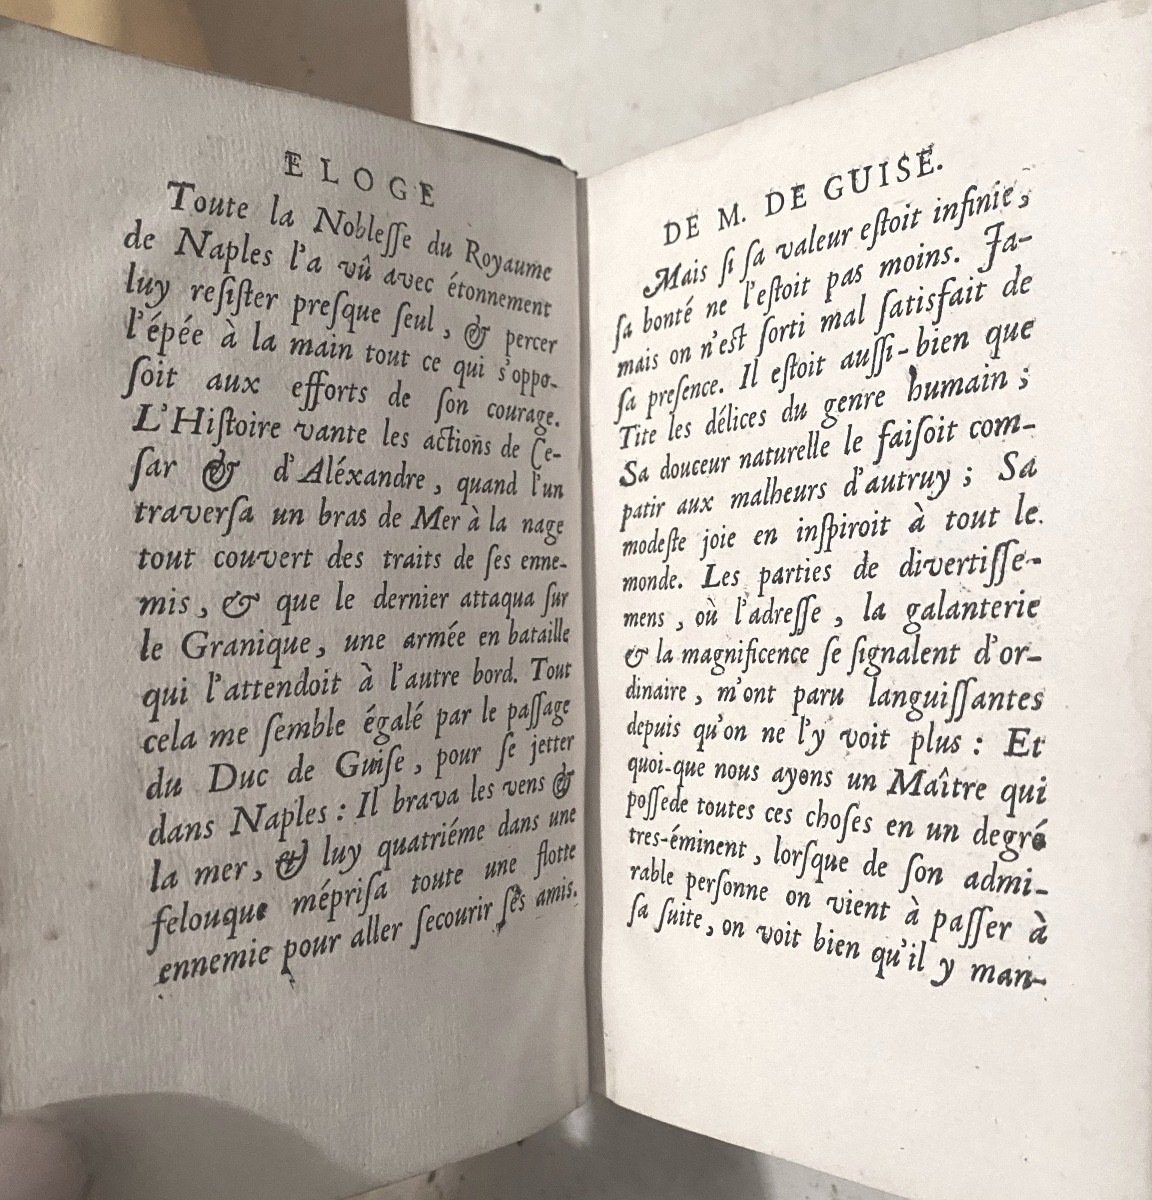 ELOGE
Toute la Nobleſſe du Royaume
de Naples l'a vû avec étonnement
luy reſiſter preſque ſeul, & percer
l'épée à la main tout ce qui s'oppo-
ſoit aux efforts de ſon courage.
L'Hiſtoire vante les actions de Ce-
ſar & d'Aléxandre, quand l'un
traverſa un bras de Mer à la nage
tout couvert des traits de ſes enne-
mis, & que le dernier attaqua ſur
le Granique, une armée en bataille
qui l'attendoit à l'autre bord. Tout
cela me ſemble égalé par le paſſage
du Duc de Guiſe, pour ſe jetter
dans Naples : Il brava les vens &
la mer, & luy quatriéme dans une
felouque mépriſa toute une flotte
ennemie pour aller ſecourir ſes amis.
DE M. DE GUISE.
Mais ſi ſa valeur eſtoit infinie ;
ſa bonté ne l'eſtoit pas moins. Ja-
mais on n'est ſorti mal ſatisfait de
ſa preſence. Il eſtoit auſſi-bien que
Tite les délices du genre humain ;
Sa douceur naturelle le faiſoit com-
patir aux malheurs d'autruy ; Sa
modeſte joie en inſpiroit à tout le
monde. Les parties de divertiſſe-
mens, où l'adreſſe, la galanterie
& la magnificence ſe ſignalent d'or-
dinaire, m'ont paru languiſſantes
depuis qu'on ne l'y voit plus : Et
quoi-que nous ayons un Maître qui
poſſede toutes ces choſes en un degré
tres-éminent, lorſque de ſon admi-
rable perſonne on vient à paſſer à
ſa ſuite, on voit bien qu'il y man-